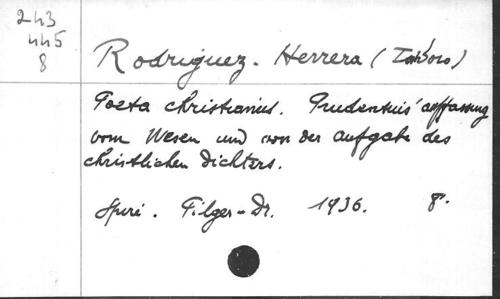 243
445
8
Rodriguez-Herrera (Isidoro)
Poeta christianus. Prudentius' auffassung
vom Wesen und von der aufgabe des
christlichen Dichters.
Speyer. Pilger-Dr. 1936. 8°.